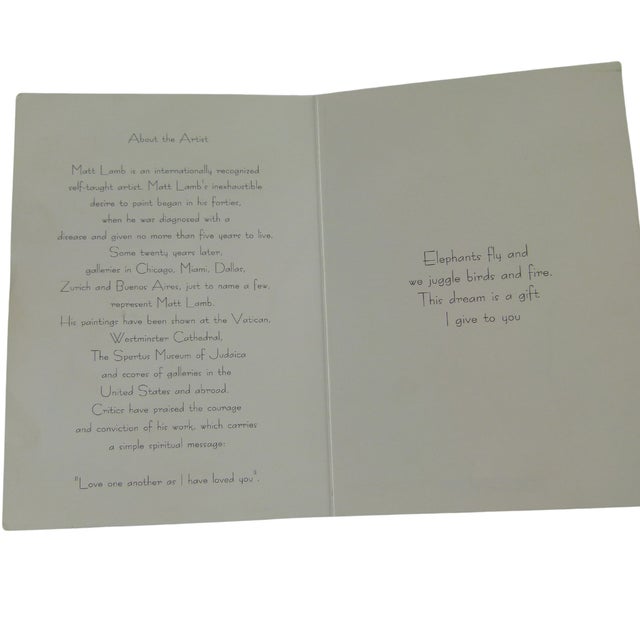 About the Artist
Matt Lamb is an internationally recognized
self-taught artist. Matt Lamb's inexhaustible
desire to paint began in his forties,
when he was diagnosed with a
disease and given no more than five years to live.
Some twenty years later,
galleries in Chicago, Miami, Dallas,
Zurich and Buenos Aires, just to name a few,
represent Matt Lamb.
His paintings have been shown at the Vatican,
Westminster Cathedral,
The Spertus Museum of Judaica
and scores of galleries in the
United States and abroad.
Critics have praised the courage
and conviction of his work, which carries
a simple spiritual message:
"Love one another as I have loved you".
Elephants fly and
we juggle birds and fire.
This dream is a gift
I give to you